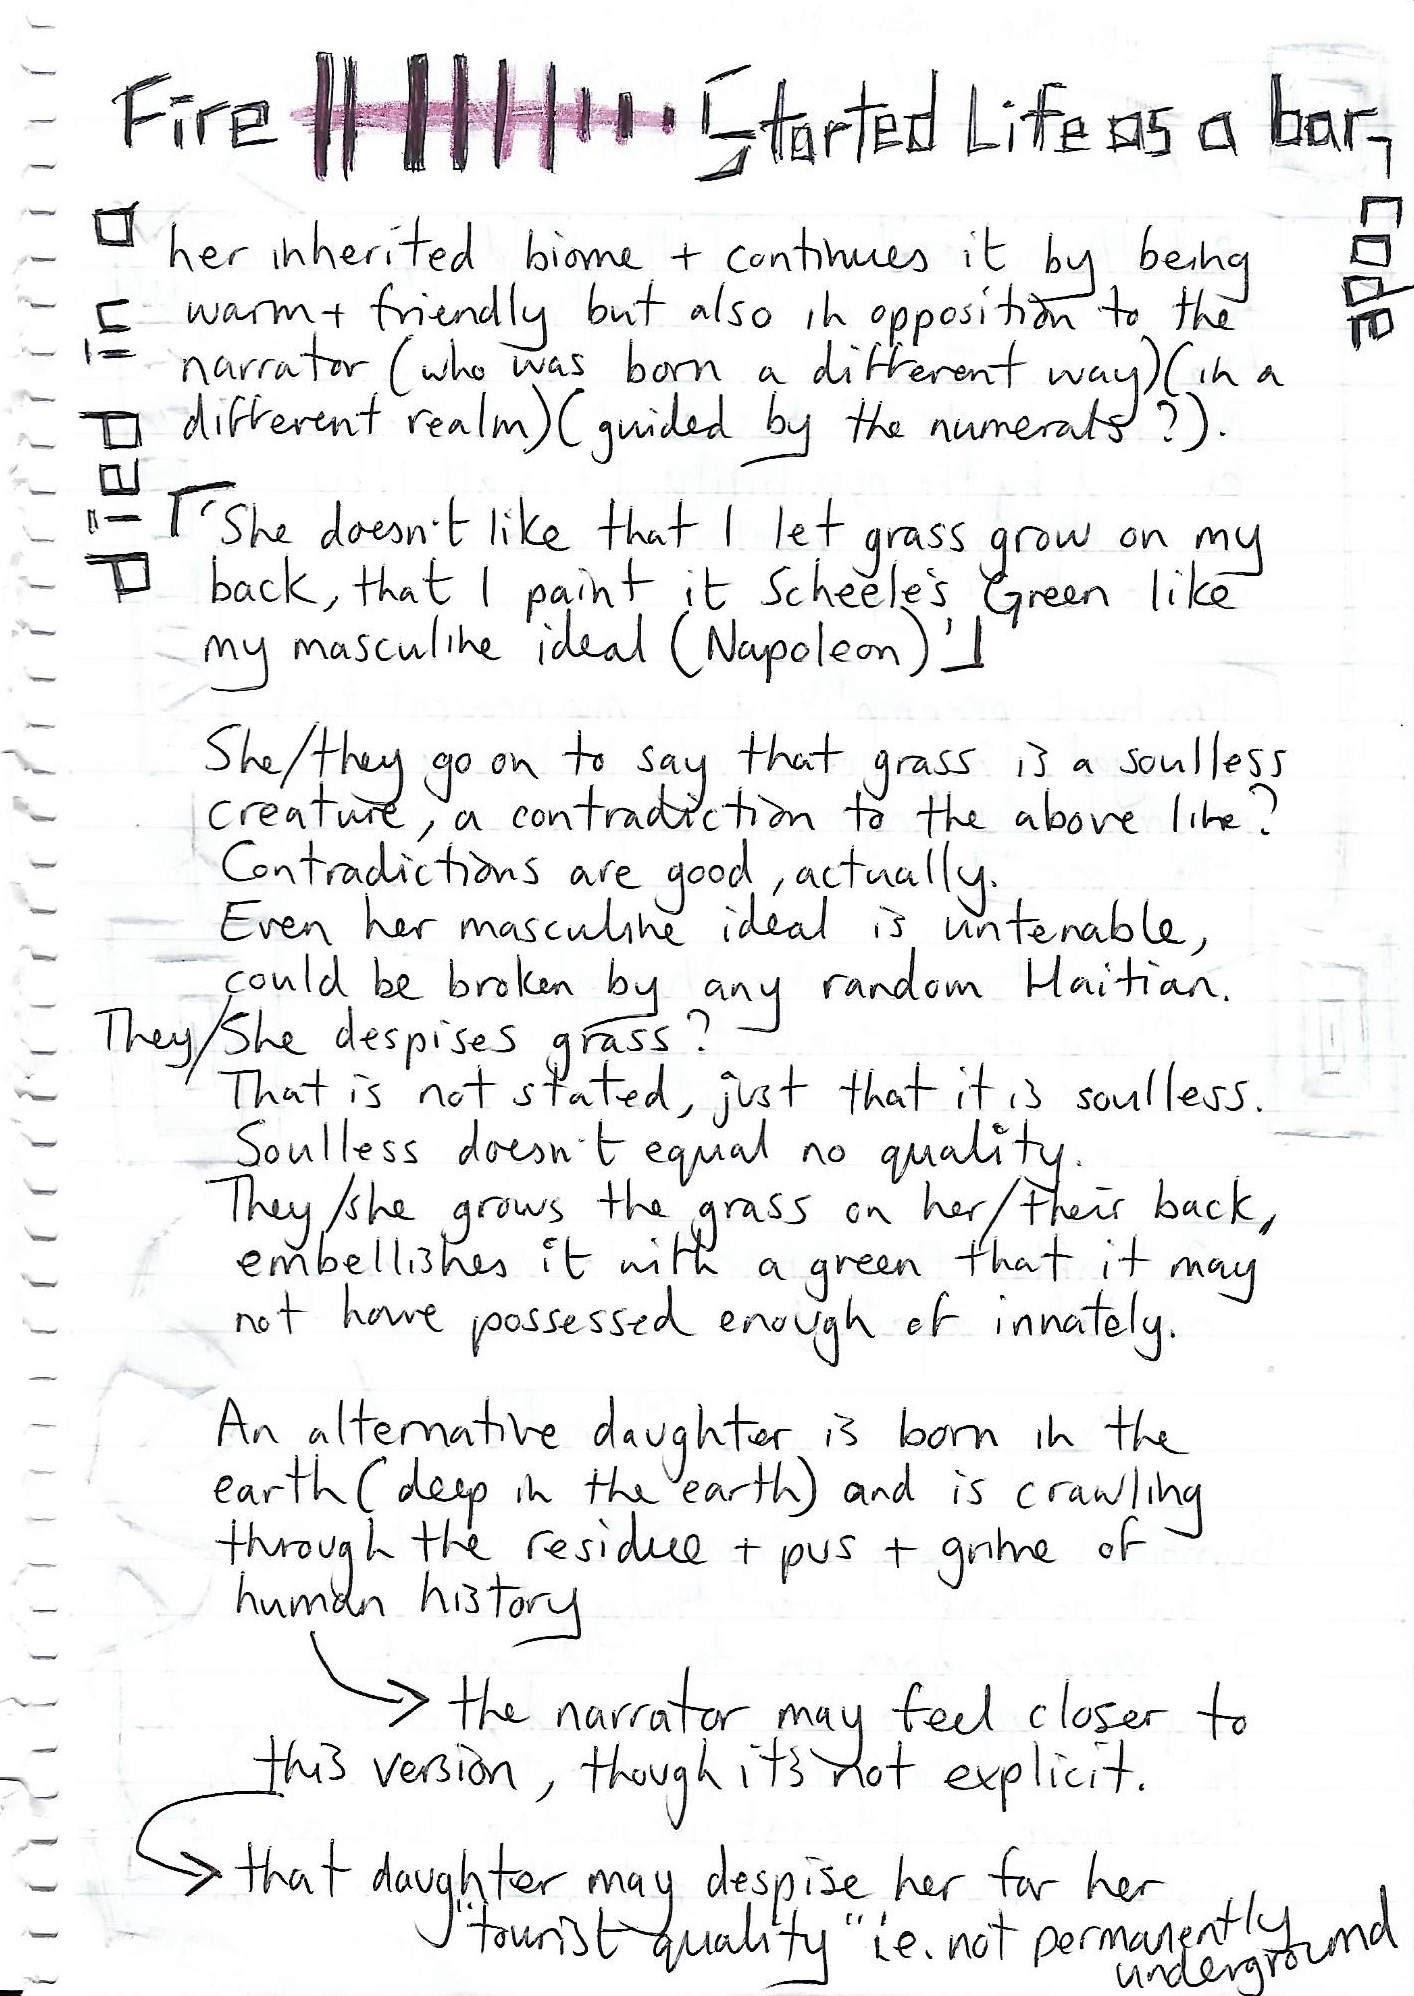 Fire Started Life as a bar-
code
Died in a
her inherited biome + continues it by being
warm + friendly but also in opposition to the
narrator (who was born a different way)(in a
different realm)(guided by the numerals?).
「'She doesn't like that I let grass grow on my
back, that I paint it Scheele's Green like
my masculine ideal (Napoleon)'」
She/they go on to say that grass is a soulless
creature, a contradiction to the above line?
Contradictions are good, actually.
Even her masculine ideal is untenable,
could be broken by any random Haitian.
They/She despises grass?
That is not stated, just that it is soulless.
Soulless doesn't equal no quality.
They/she grows the grass on her/their back,
embellishes it with a green that it may
not have possessed enough of innately.
An alternative daughter is born in the
earth (deep in the earth) and is crawling
through the residue + pus + grime of
human history
→ the narrator may feel closer to
this version, though it's not explicit.
→ that daughter may despise her for her
"tourist quality" i.e. not permanently
underground